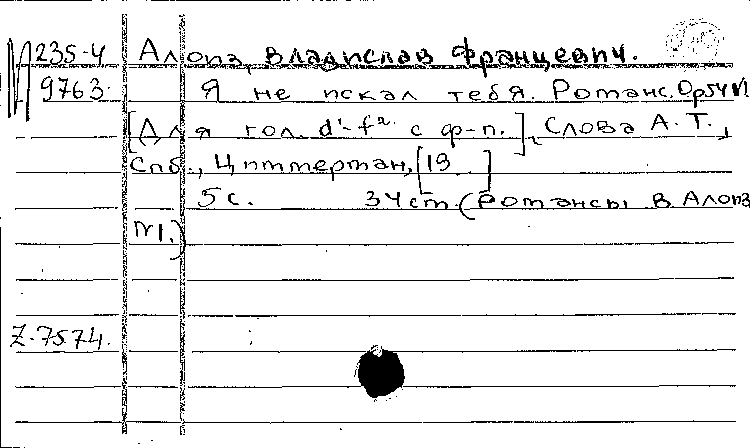 М 235-4 Алоиз, Владислав Францевич.
9763. Я не искал тебя. Романс. Op 54 N1
[Для гол. d¹-f² с ф-п.], Слова А. Т.,
Спб., Циммерман, [19 ]
5 с. 34 см. (Романсы В. Алоиз
N1.)
Z.7574.